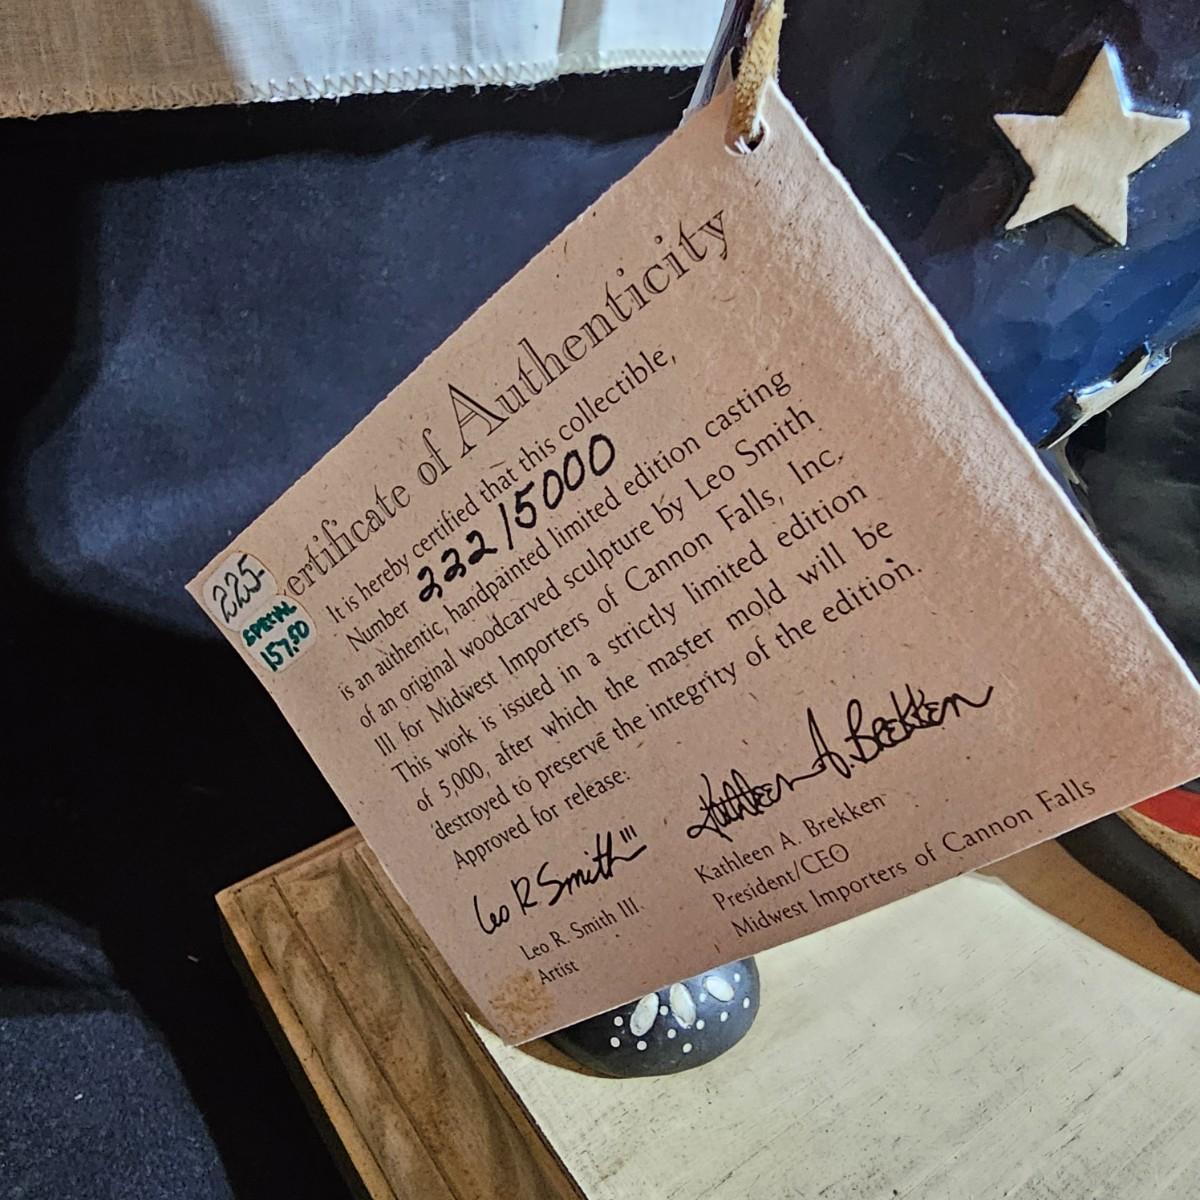 ertificate of Authenticity
It is hereby certified that this collectible,
Number 222/5000
is an authentic, handpainted limited edition casting
of an original woodcarved sculpture by Leo Smith
III for Midwest Importers of Cannon Falls, Inc.
This work is issued in a strictly limited edition
of 5,000, after which the master mold will be
destroyed to preserve the integrity of the edition.
Approved for release:
Leo R Smith III
Leo R. Smith III.
Artist
Kathleen A. Brekken
Kathleen A. Brekken
President/CEO
Midwest Importers of Cannon Falls
225-
SPECIAL
157.50